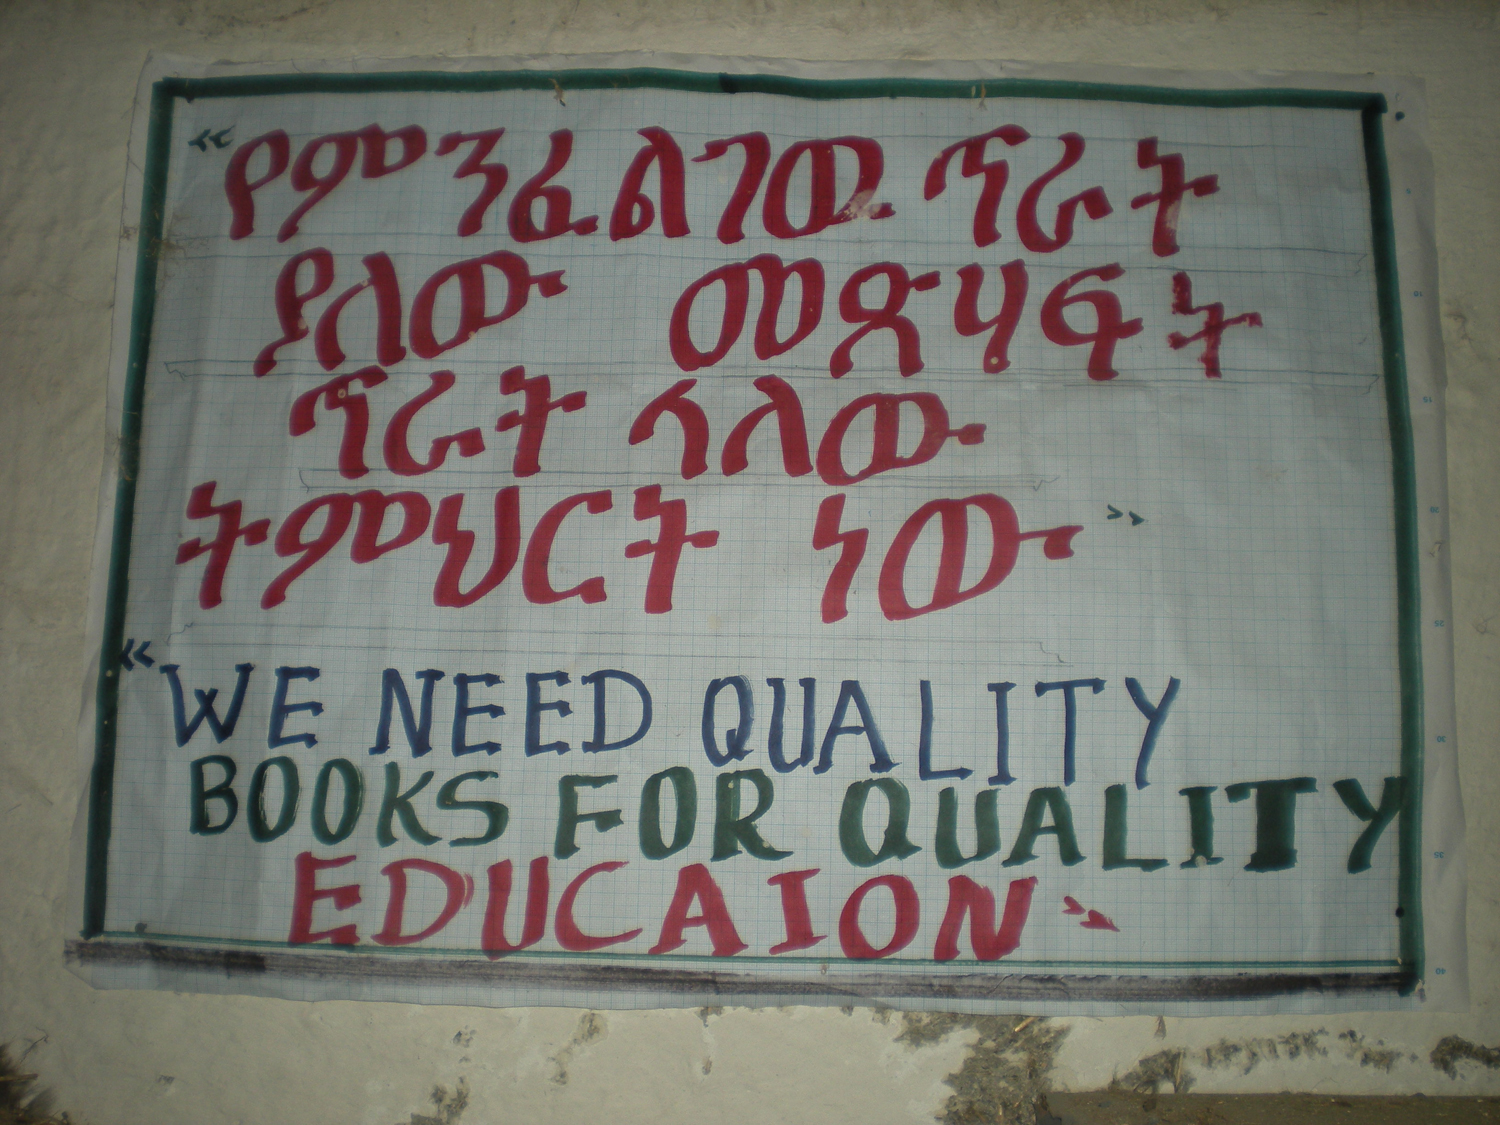 «የምንፈልገዉ ጥራት
ያለው መጽሃፍት
ጥራት ላለው
ትምህርት ነው»
«WE NEED QUALITY
BOOKS FOR QUALITY
EDUCAION»